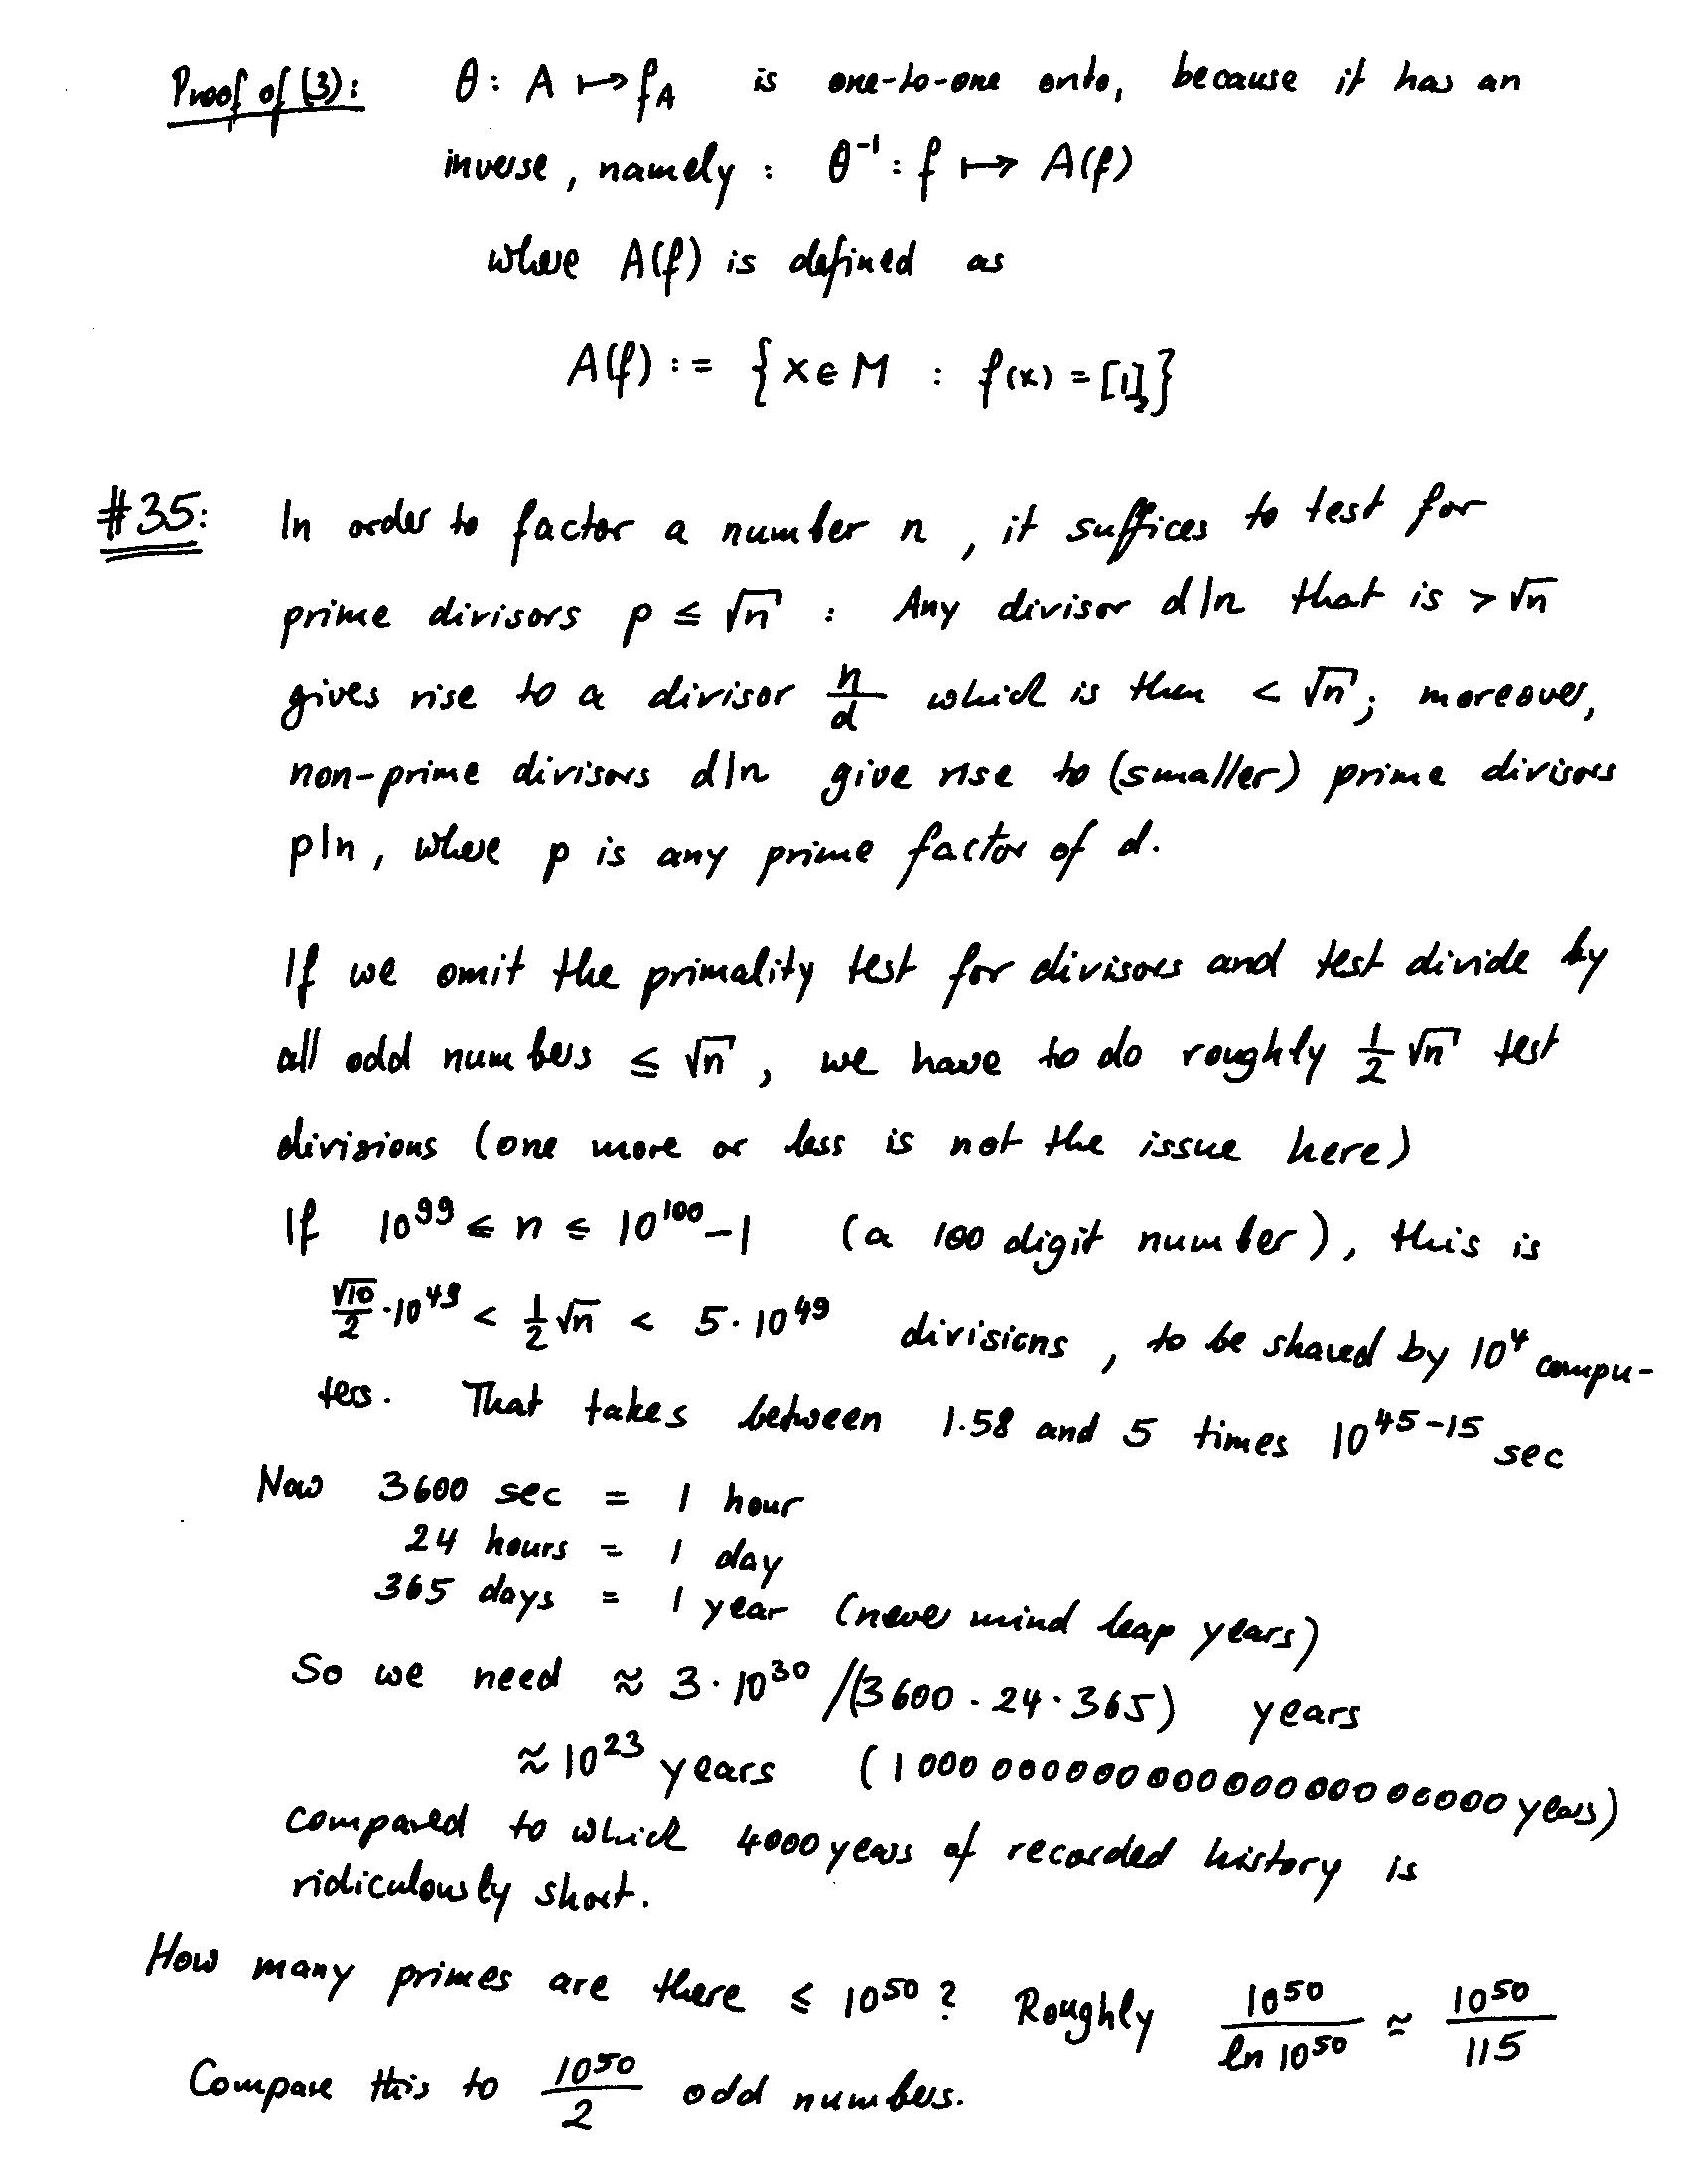 Proof of (3): θ: A ↦ f_A is one-to-one onto, because it has an
inverse, namely: θ⁻¹: f ↦ A(f)
where A(f) is defined as
A(f) := {x ∈ M : f(x) = [1]₂}
#35: In order to factor a number n, it suffices to test for
prime divisors p ≤ √n : Any divisor d|n that is > √n
gives rise to a divisor n/d which is then < √n; moreover,
non-prime divisors d|n give rise to (smaller) prime divisors
p|n, where p is any prime factor of d.
If we omit the primality test for divisors and test divide by
all odd numbers ≤ √n, we have to do roughly 1/2 √n test
divisions (one more or less is not the issue here)
If 10⁹⁹ ≤ n ≤ 10¹⁰⁰-1 (a 100 digit number), this is
√10/2 · 10⁴⁹ < 1/2 √n < 5 · 10⁴⁹ divisions, to be shared by 10⁴ compu-
ters. That takes between 1.58 and 5 times 10⁴⁵⁻¹⁵ sec
Now 3600 sec = 1 hour
24 hours = 1 day
365 days = 1 year (never mind leap years)
So we need ≈ 3 · 10³⁰ /(3600 · 24 · 365) years
≈ 10²³ years (100000000000000000000000 years)
compared to which 4000 years of recorded history is
ridiculously short.
How many primes are there ≤ 10⁵⁰? Roughly 10⁵⁰/ln 10⁵⁰ ≈ 10⁵⁰/115
Compare this to 10⁵⁰/2 odd numbers.